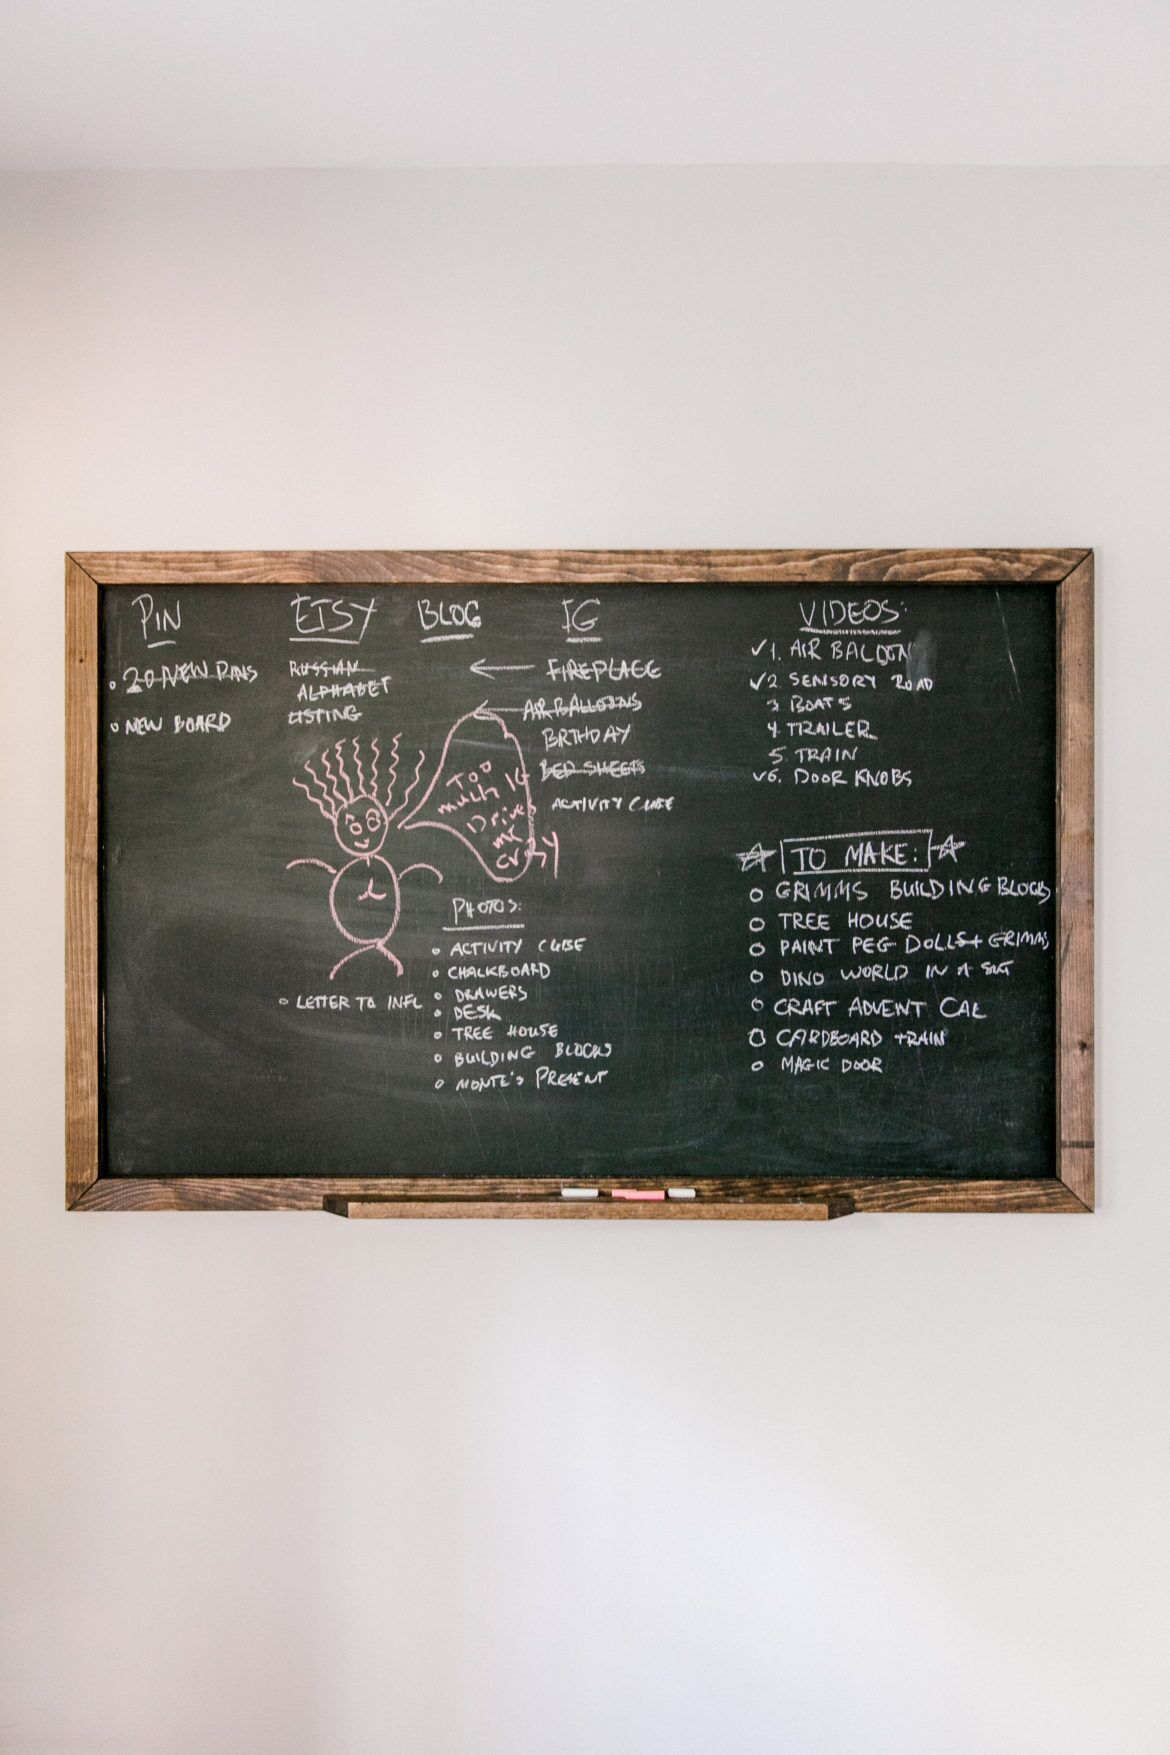 PIN
• 20 NEW PINS
• NEW BOARD
ETSY
RUSSIAN
ALPHABET
LISTING
BLOG
IG
← FIREPLACE
← AIR BALLOONS
BRTHDAY
BED SHEETS
ACTIVITY CUBE
Too
much IG
Drives
me
crazy
• LETTER TO INFL
PHOTOS:
• ACTIVITY CUBE
• CHALKBOARD
• DRAWERS
• DESK
• TREE HOUSE
• BUILDING BLOCKS
• MONTE'S PRESENT
VIDEOS:
✓ 1. AIR BALOON
✓ 2 SENSORY ROAD
3 BOATS
4 TRAILER
5. TRAIN
✓ 6. DOOR KNOBS
☆ TO MAKE: ☆
○ GRIMMS BUILDING BLOCKS
○ TREE HOUSE
○ PAINT PEG DOLLS + GRIMMS
○ DINO WORLD IN A
○ CRAFT ADVENT CAL
○ CARDBOARD TRAIN
○ MAGIC DOOR